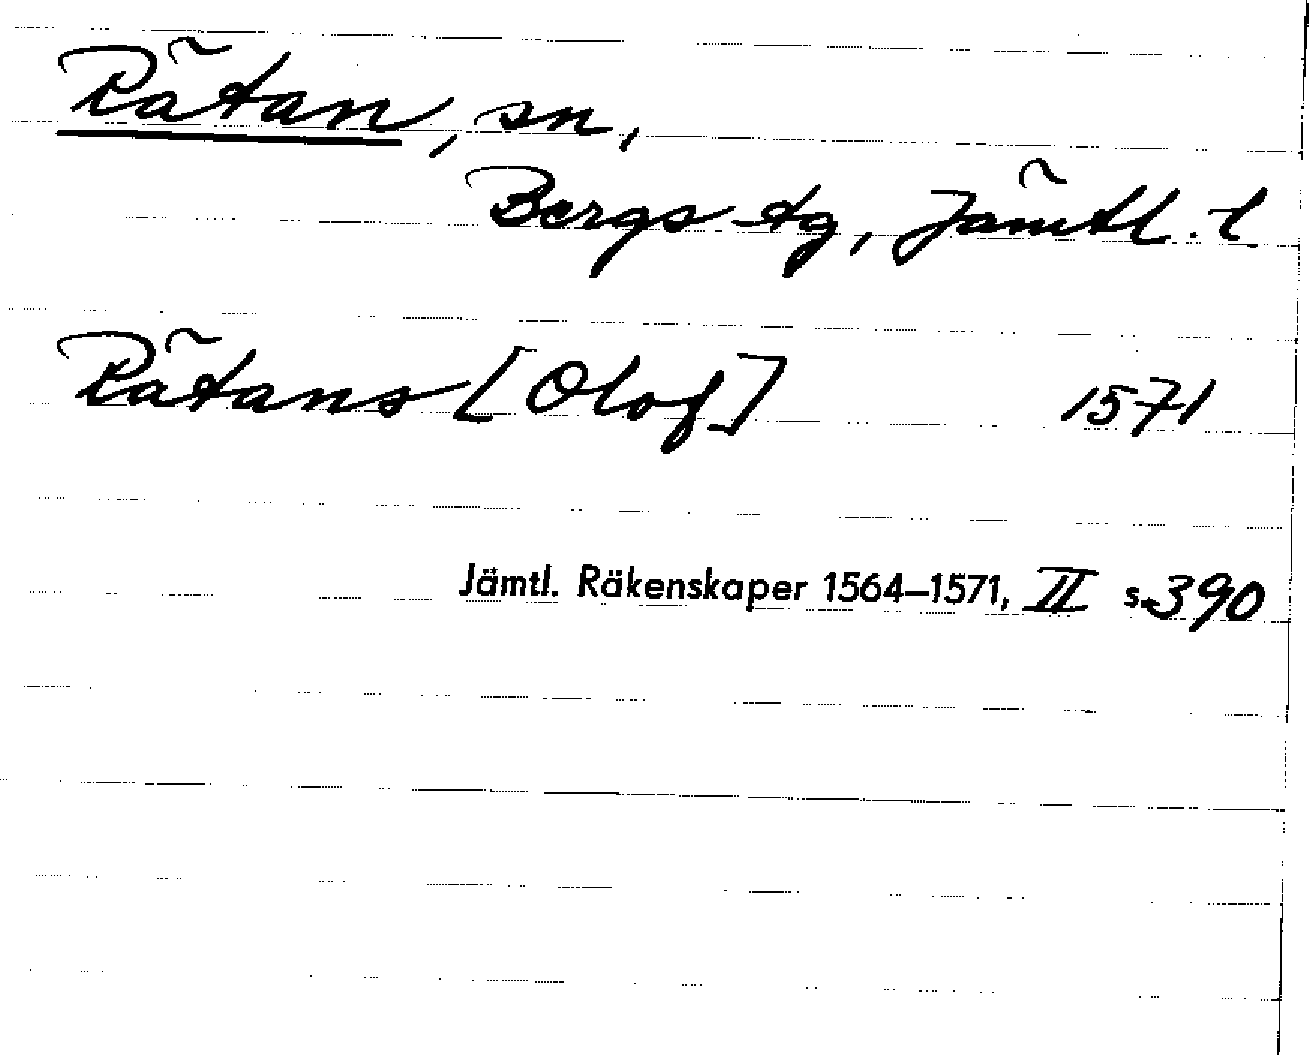 Rätan, sn,
Bergs tg, Jämtl. l
Rätans [Olof] 1571
Jämtl. Räkenskaper 1564–1571, II s. 390